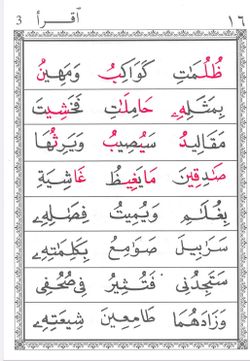 ١٦ اَقْرَأْ 3
ظُلُمَٰتِ كَوَاكِبُ وَمَهِينٌ
بِمَثَلِهِۦ حَامِلَاتِ فَخَشِيتَ
مَقَالِيدُ سَيُصِيبُ وَيَرِثُهَا
صَٰدِقِينَ مَايَغِيظُ غَاشِيَةٌ
بِغُلَٰمٍ وَيُمِيتُ فِصَٰلِهِۦ
سَرَابِيلَ صَوَامِعُ بِكَلِمَٰتِهِۦ
سَتَجِدُنِي فَتُثِيرُ فِي صُحُفِي
وَزَادَهُمَا طَامِعِينَ شِيعَتِهِۦ